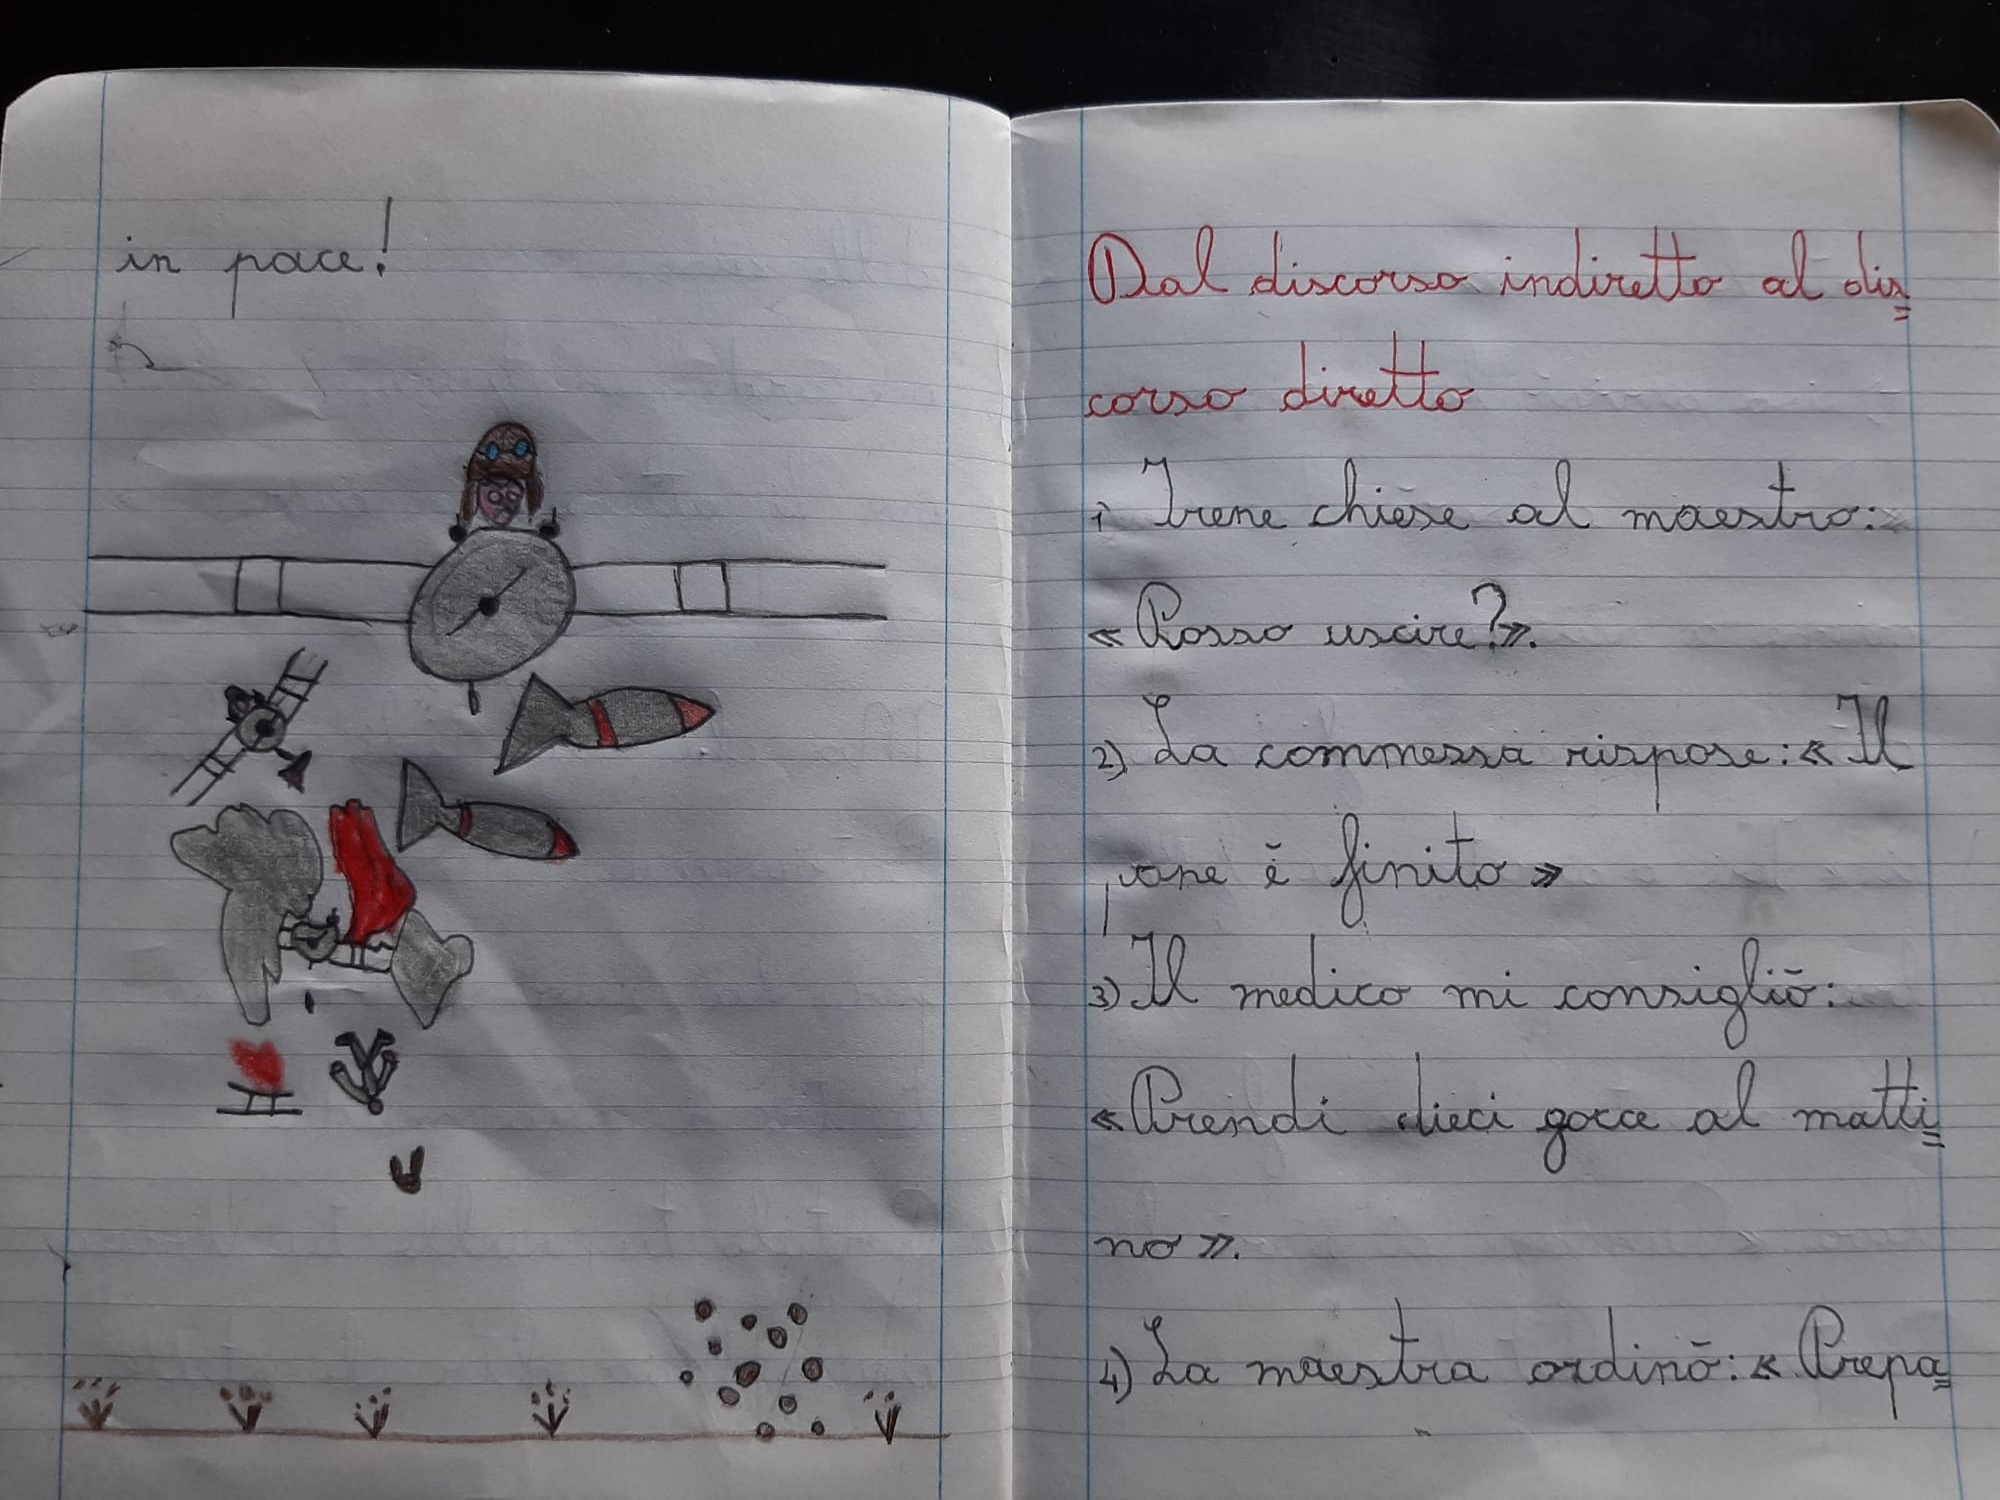 in pace!
Dal discorso indiretto al dis=
corso diretto
1) Irene chiese al maestro:
« Posso uscire?».
2) La commessa rispose: « Il
pane è finito »
3) Il medico mi consigliò:
« Prendi dieci gocce al matti=
no ».
4) La maestra ordinò: « Prepa=